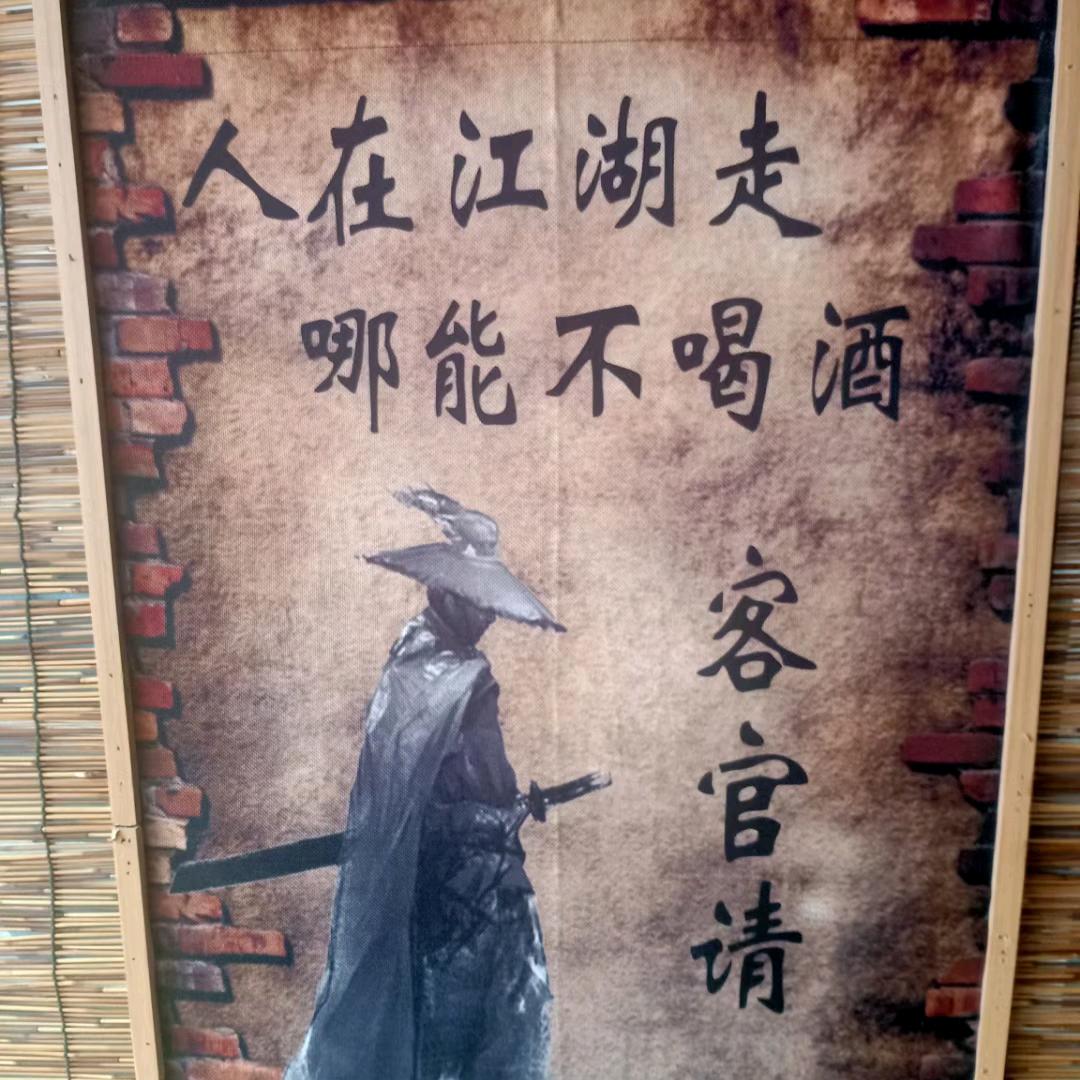 人在江湖走
哪能不喝酒
客官请